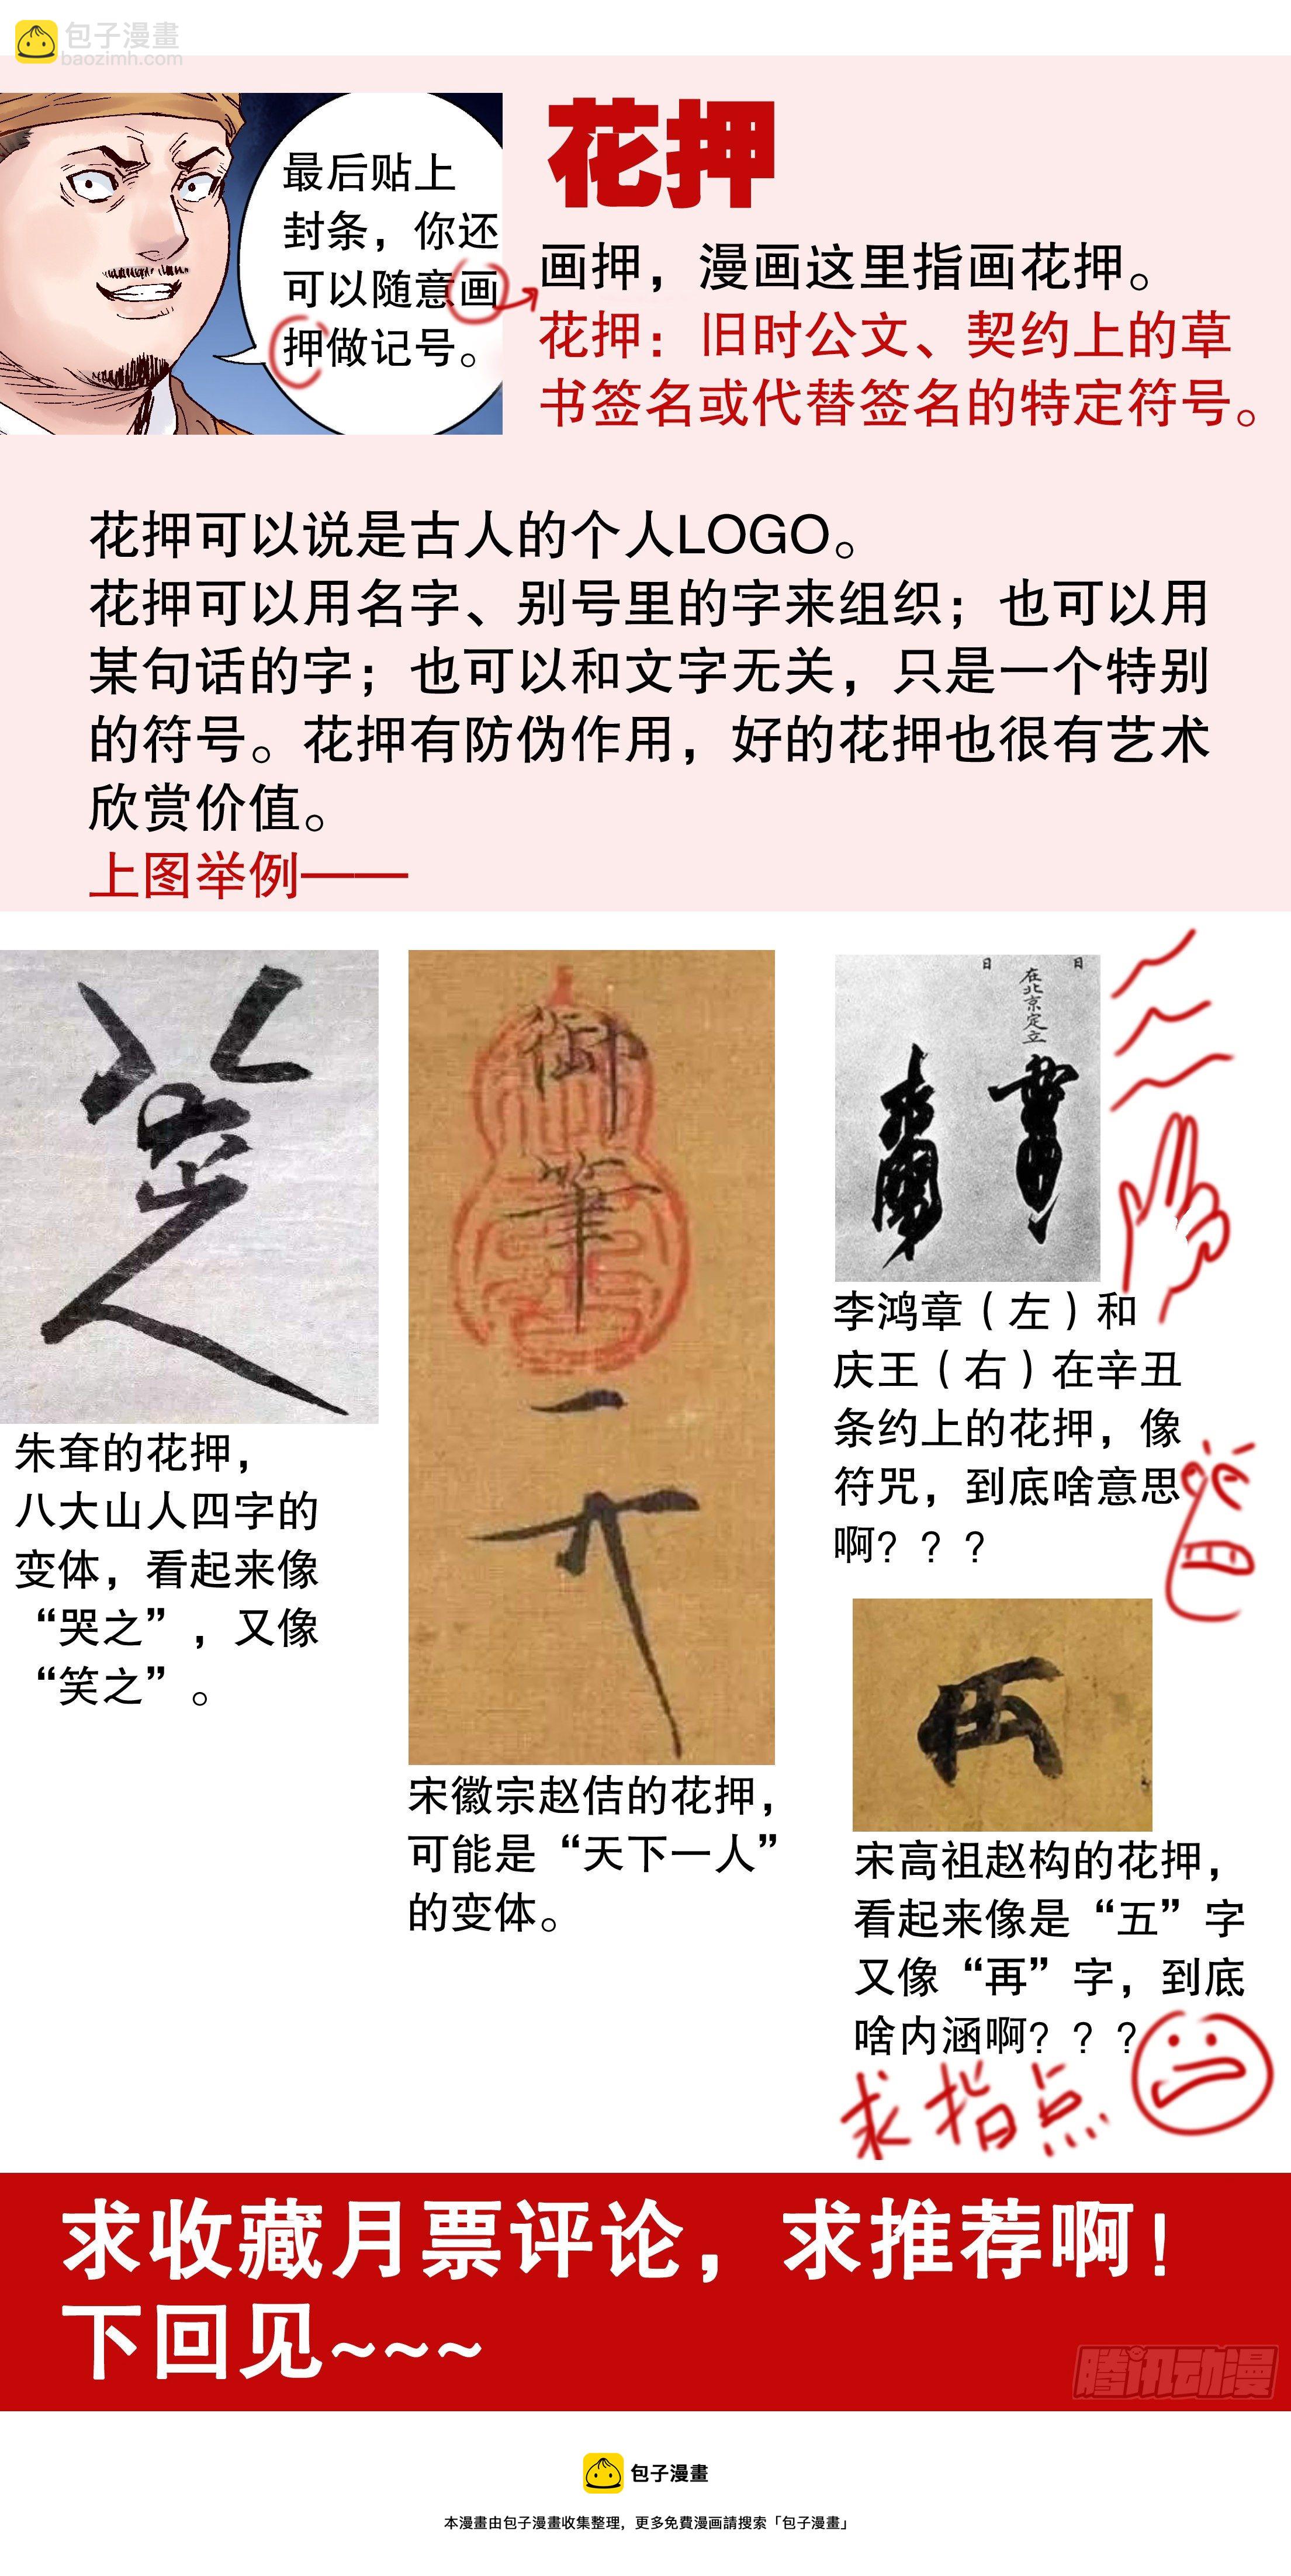 包子漫畫
baozimh.com
最后贴上
封条，你还
可以随意画
押做记号。
花押
画押，漫画这里指画花押。
花押：旧时公文、契约上的草
书签名或代替签名的特定符号。
花押可以说是古人的个人LOGO。
花押可以用名字、别号里的字来组织；也可以用
某句话的字；也可以和文字无关，只是一个特别
的符号。花押有防伪作用，好的花押也很有艺术
欣赏价值。
上图举例——
御筆
日
日
在北京定立
朱耷的花押，
八大山人四字的
变体，看起来像
“哭之”，又像
“笑之”。
宋徽宗赵佶的花押，
可能是“天下一人”
的变体。
李鸿章（左）和
庆王（右）在辛丑
条约上的花押，像
符咒，到底啥意思
啊？？？
宋高祖赵构的花押，
看起来像是“五”字
又像“再”字，到底
啥内涵啊？？？
求指点
求收藏月票评论，求推荐啊！
下回见~~~
腾讯动漫
包子漫畫
本漫畫由包子漫畫收集整理，更多免費漫画請搜索「包子漫畫」